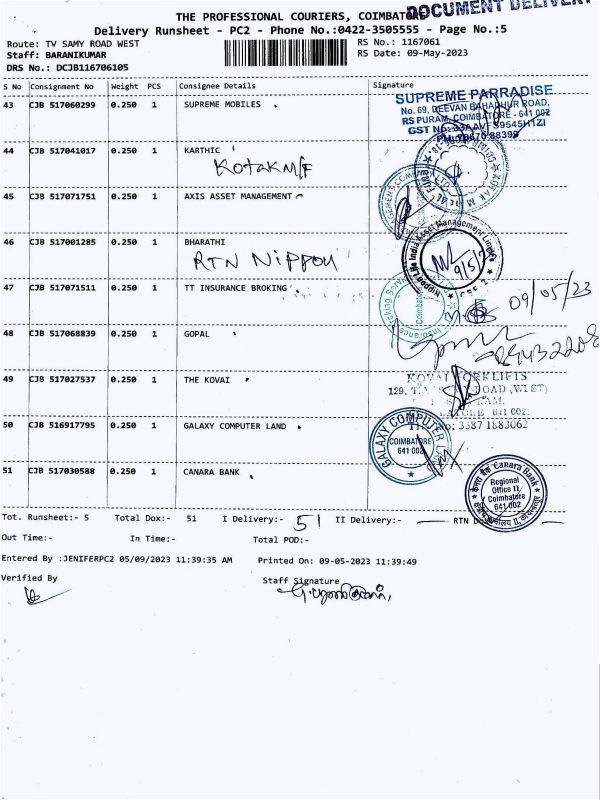 THE PROFESSIONAL COURIERS, COIMBATORE
DOCUMENT DELIVERY
Delivery Runsheet - PC2 - Phone No.:0422-3505555 - Page No.:5
Route: TV SAMY ROAD WEST RS No.: 1167061
Staff: BARANIKUMAR RS Date: 09-May-2023
DRS No.: DCJB116706105
S No Consignment No Weight PCS Consignee Details Signature
43 CJB 517060299 0.250 1 SUPREME MOBILES
SUPREME PARRADISE
No. 69, DEEVAN BAHADHUR ROAD,
RS PURAM, COIMBATORE - 641 002
44 CJB 517041017 0.250 1 KARTHIC
Kotak M/F
45 CJB 517071751 0.250 1 AXIS ASSET MANAGEMENT
46 CJB 517001285 0.250 1 BHARATHI
RTN NIPPON
Nippon Life India Asset Management Limited
9/5/23
47 CJB 517071511 0.250 1 TT INSURANCE BROKING
Coimbatore
09/05/23
48 CJB 517068839 0.250 1 GOPAL
49 CJB 517027537 0.250 1 THE KOVAI
KOVAI FORKLIFTS
50 CJB 516917795 0.250 1 GALAXY COMPUTER LAND
GALAXY COMPUTER LAND
COIMBATORE
641 002
51 CJB 517030588 0.250 1 CANARA BANK
केनरा बैंक Canara Bank
Regional
Office II
Coimbatore
641 002
Tot. Runsheet:- 5 Total Dox:- 51 I Delivery:- 51 II Delivery:- RTN Dox
Out Time:- In Time:- Total POD:-
Entered By :JENIFERPC2 05/09/2023 11:39:35 AM Printed On: 09-05-2023 11:39:49
Verified By Staff Signature